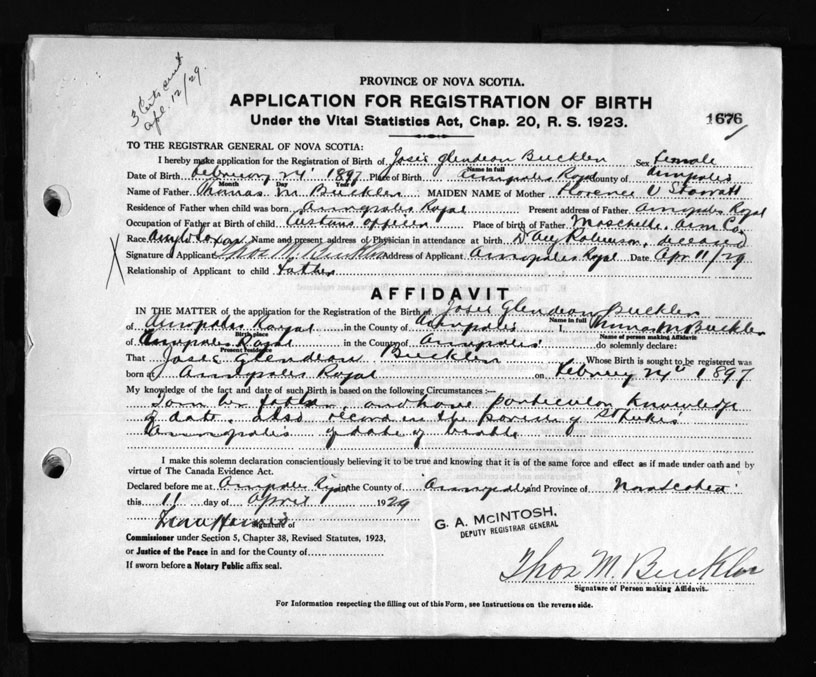 3 Certs sent
Apl. 12/29.
PROVINCE OF NOVA SCOTIA.
APPLICATION FOR REGISTRATION OF BIRTH
1676
Under the Vital Statistics Act, Chap. 20, R. S. 1923.
TO THE REGISTRAR GENERAL OF NOVA SCOTIA:
I hereby make application for the Registration of Birth of Josie Glendeon Buckler Sex female
Name in full
Date of Birth February 24th 1897 Place of Birth Annapolis Royal County of Annapolis
Month Day Year
Name of Father Thomas M. Buckler MAIDEN NAME of Mother Florence V Starratt
Residence of Father when child was born Annapolis Royal Present address of Father Annapolis Royal
Occupation of Father at Birth of child Customs officer Place of birth of Father Moschelle, Ann Co.
Race Anglo Saxon Name and present address of Physician in attendance at birth Dr Aug Robinson, deceased
Signature of Applicant Thos M. Buckler Address of Applicant Annapolis Royal Date Apr 11/29
Relationship of Applicant to child father
AFFIDAVIT
IN THE MATTER of the application for the Registration of the Birth of Josie Glendeon Buckler
Name in full
of Annapolis Royal in the County of Annapolis I, Thomas M Buckler
Birth place Name of person making Affidavit
of Annapolis Royal in the County of Annapolis do solemnly declare:
Present residence
That Josie Glendeon Buckler Whose Birth is sought to be registered was
born at Annapolis Royal on February 24th 1897
My knowledge of the fact and date of such Birth is based on the following Circumstances :—
I am her father, and have particular knowledge
of date. also record in the parish of St Lukes
Annapolis of date of birth
I make this solemn declaration conscientiously believing it to be true and knowing that it is of the same force and effect as if made under oath and by
virtue of The Canada Evidence Act.
Declared before me at Annapolis Royal in the County of Annapolis and Province of Nova Scotia
this 11 day of April 1929
Signature of
G. A. McINTOSH,
DEPUTY REGISTRAR GENERAL
Commissioner under Section 5, Chapter 38, Revised Statutes, 1923,
or Justice of the Peace in and for the County of
If sworn before a Notary Public affix seal.
Thos M. Buckler
Signature of Person making Affidavit.
For Information respecting the filling out of this Form, see Instructions on the reverse side.